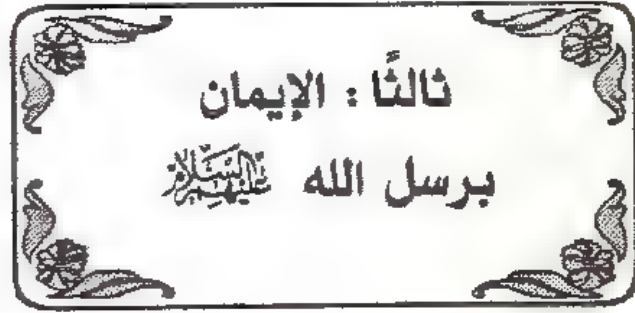 ثالثًا : الإيمان
برسل الله عَلَيْهِمُ السَّلَامُ